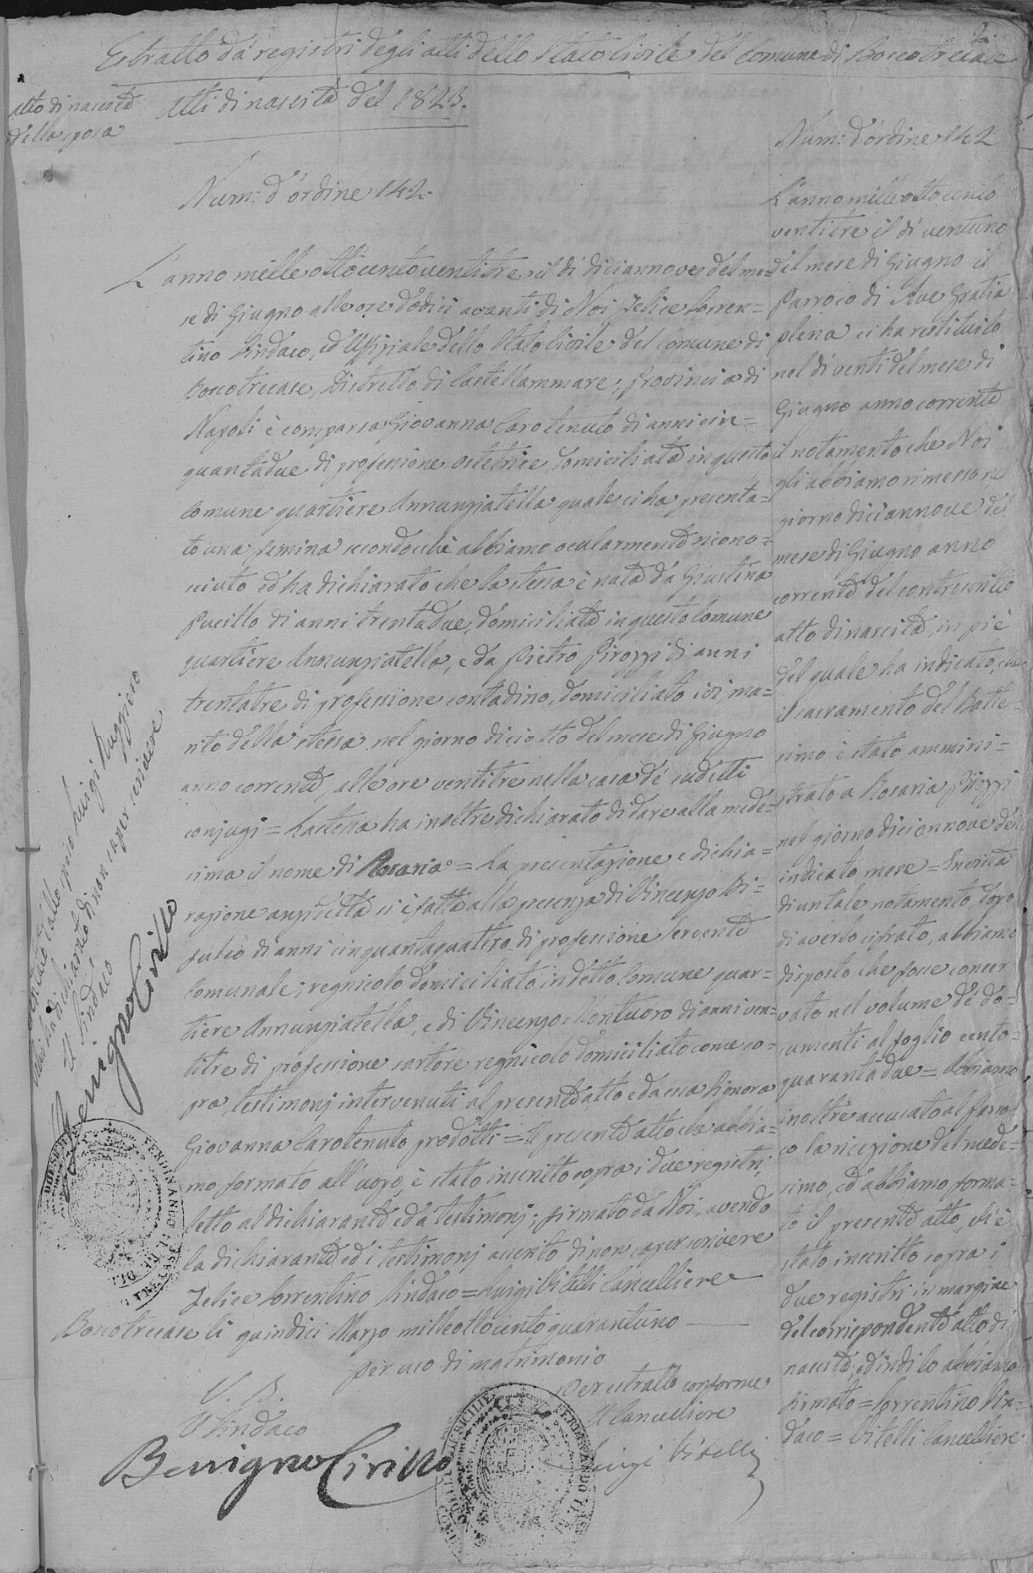 2.
Estratto da registri degli atti dello Stato Civile del Comune di Boscotrecase
Atto di nascita
della sposa
Atti di nascita del 1823.
Num: d'ordine 142.
L'anno milleottocentoventitre, il dì diciannove del me=
se di Giugno alle ore dodici avanti di Noi Felice Sorren=
tino Sindaco, ed Uffiziale dello Stato Civile del Comune di
Boscotrecase, Distretto di Castellammare, Provincia di
Napoli è comparsa Giovanna Carotenuto di anni cin=
quantadue di professione ostetrice domiciliata in questo
Comune quartiere Annunziatella quale ci ha presenta=
to una femina secondocchè abbiamo ocularmente ricono=
sciuto ed ha dichiarato che la stessa è nata da Giustina
Pucillo di anni trentadue, domiciliata in questo Comune
quartiere Annunziatella, e da Pietro Pirozzi di anni
trentatre di professione contadino, domiciliato ivi, ma=
rito della stessa nel giorno diciotto del mese di Giugno
anno corrente, alle ore ventitre nella casa de' sudetti
conjugi = La stessa ha inoltre dichiarato di dare alla mede=
sima il nome di Rosaria = La presentazione e dichia=
razione anzidetta si è fatta alla presenza di Vincenzo Bi=
fulco di anni cinquantaquattro di professione Servente
Comunale; regnicolo domiciliato in detto Comune quar=
tiere Annunziatella, e di Vincenzo Montuoro di anni ven=
titre di professione sartore regnicolo domiciliato come so=
pra, testimonj intervenuti al presente atto e da essa Signora
Giovanna Carotenuto prodotti = Il presente atto che abbia=
mo formato all'uopo, è stato inscritto sopra i due registri,
letto al dichiarante ed a' testimonj; firmato da Noi, avendo
la dichiarante ed i testimonj asserito di non saper scrivere
Felice Sorrentino Sindaco = Luigi Vitelli Cancelliere
Boscotrecase li quindici Marzo milleottocentoquarantuno
per uso di matrimonio
V. B.
Il Sindaco
Benigno Cirillo
Per estratto conforme
Il Cancelliere
Luigi Vitelli
Num: d'ordine 142
L'anno milleottocento
ventitre il dì ventuno
del mese di Giugno il
Parroco di Ave Gratia
plena ci ha restituito
nel dì venti del mese di
Giugno anno corrente
il notamento che Noi
gli abbiamo rimesso nel
giorno diciannove del
mese di Giugno anno
corrente del controscritto
atto di nascita, in piè
del quale ha indicato, che
il sacramento del Batte=
simo è stato ammini=
strato a Rosaria Pirozzi
nel giorno diciannove dell'
indicato mese = In vista
di un tale notamento dopo
di averlo cifrato, abbiamo
disposto che fosse conser
vato nel volume de' do=
cumenti al foglio cento=
quarantadue = Abbiamo
inoltre accusato al Parro=
co la ricezione del mede=
simo, ed abbiamo forma=
to il presente atto, ch'è
stato inscritto sopra i
due registri in margine
del corrispondente atto di
nascita, ed indi lo abbiamo
firmato = Sorrentino Sin=
daco = Vitelli Cancelliere
dallo sposo Luigi Ruggiero
ha dichiarato di non saper scrivere
Il Sindaco
Benigno Cirillo
FERDINANDO II
FERDINANDO II